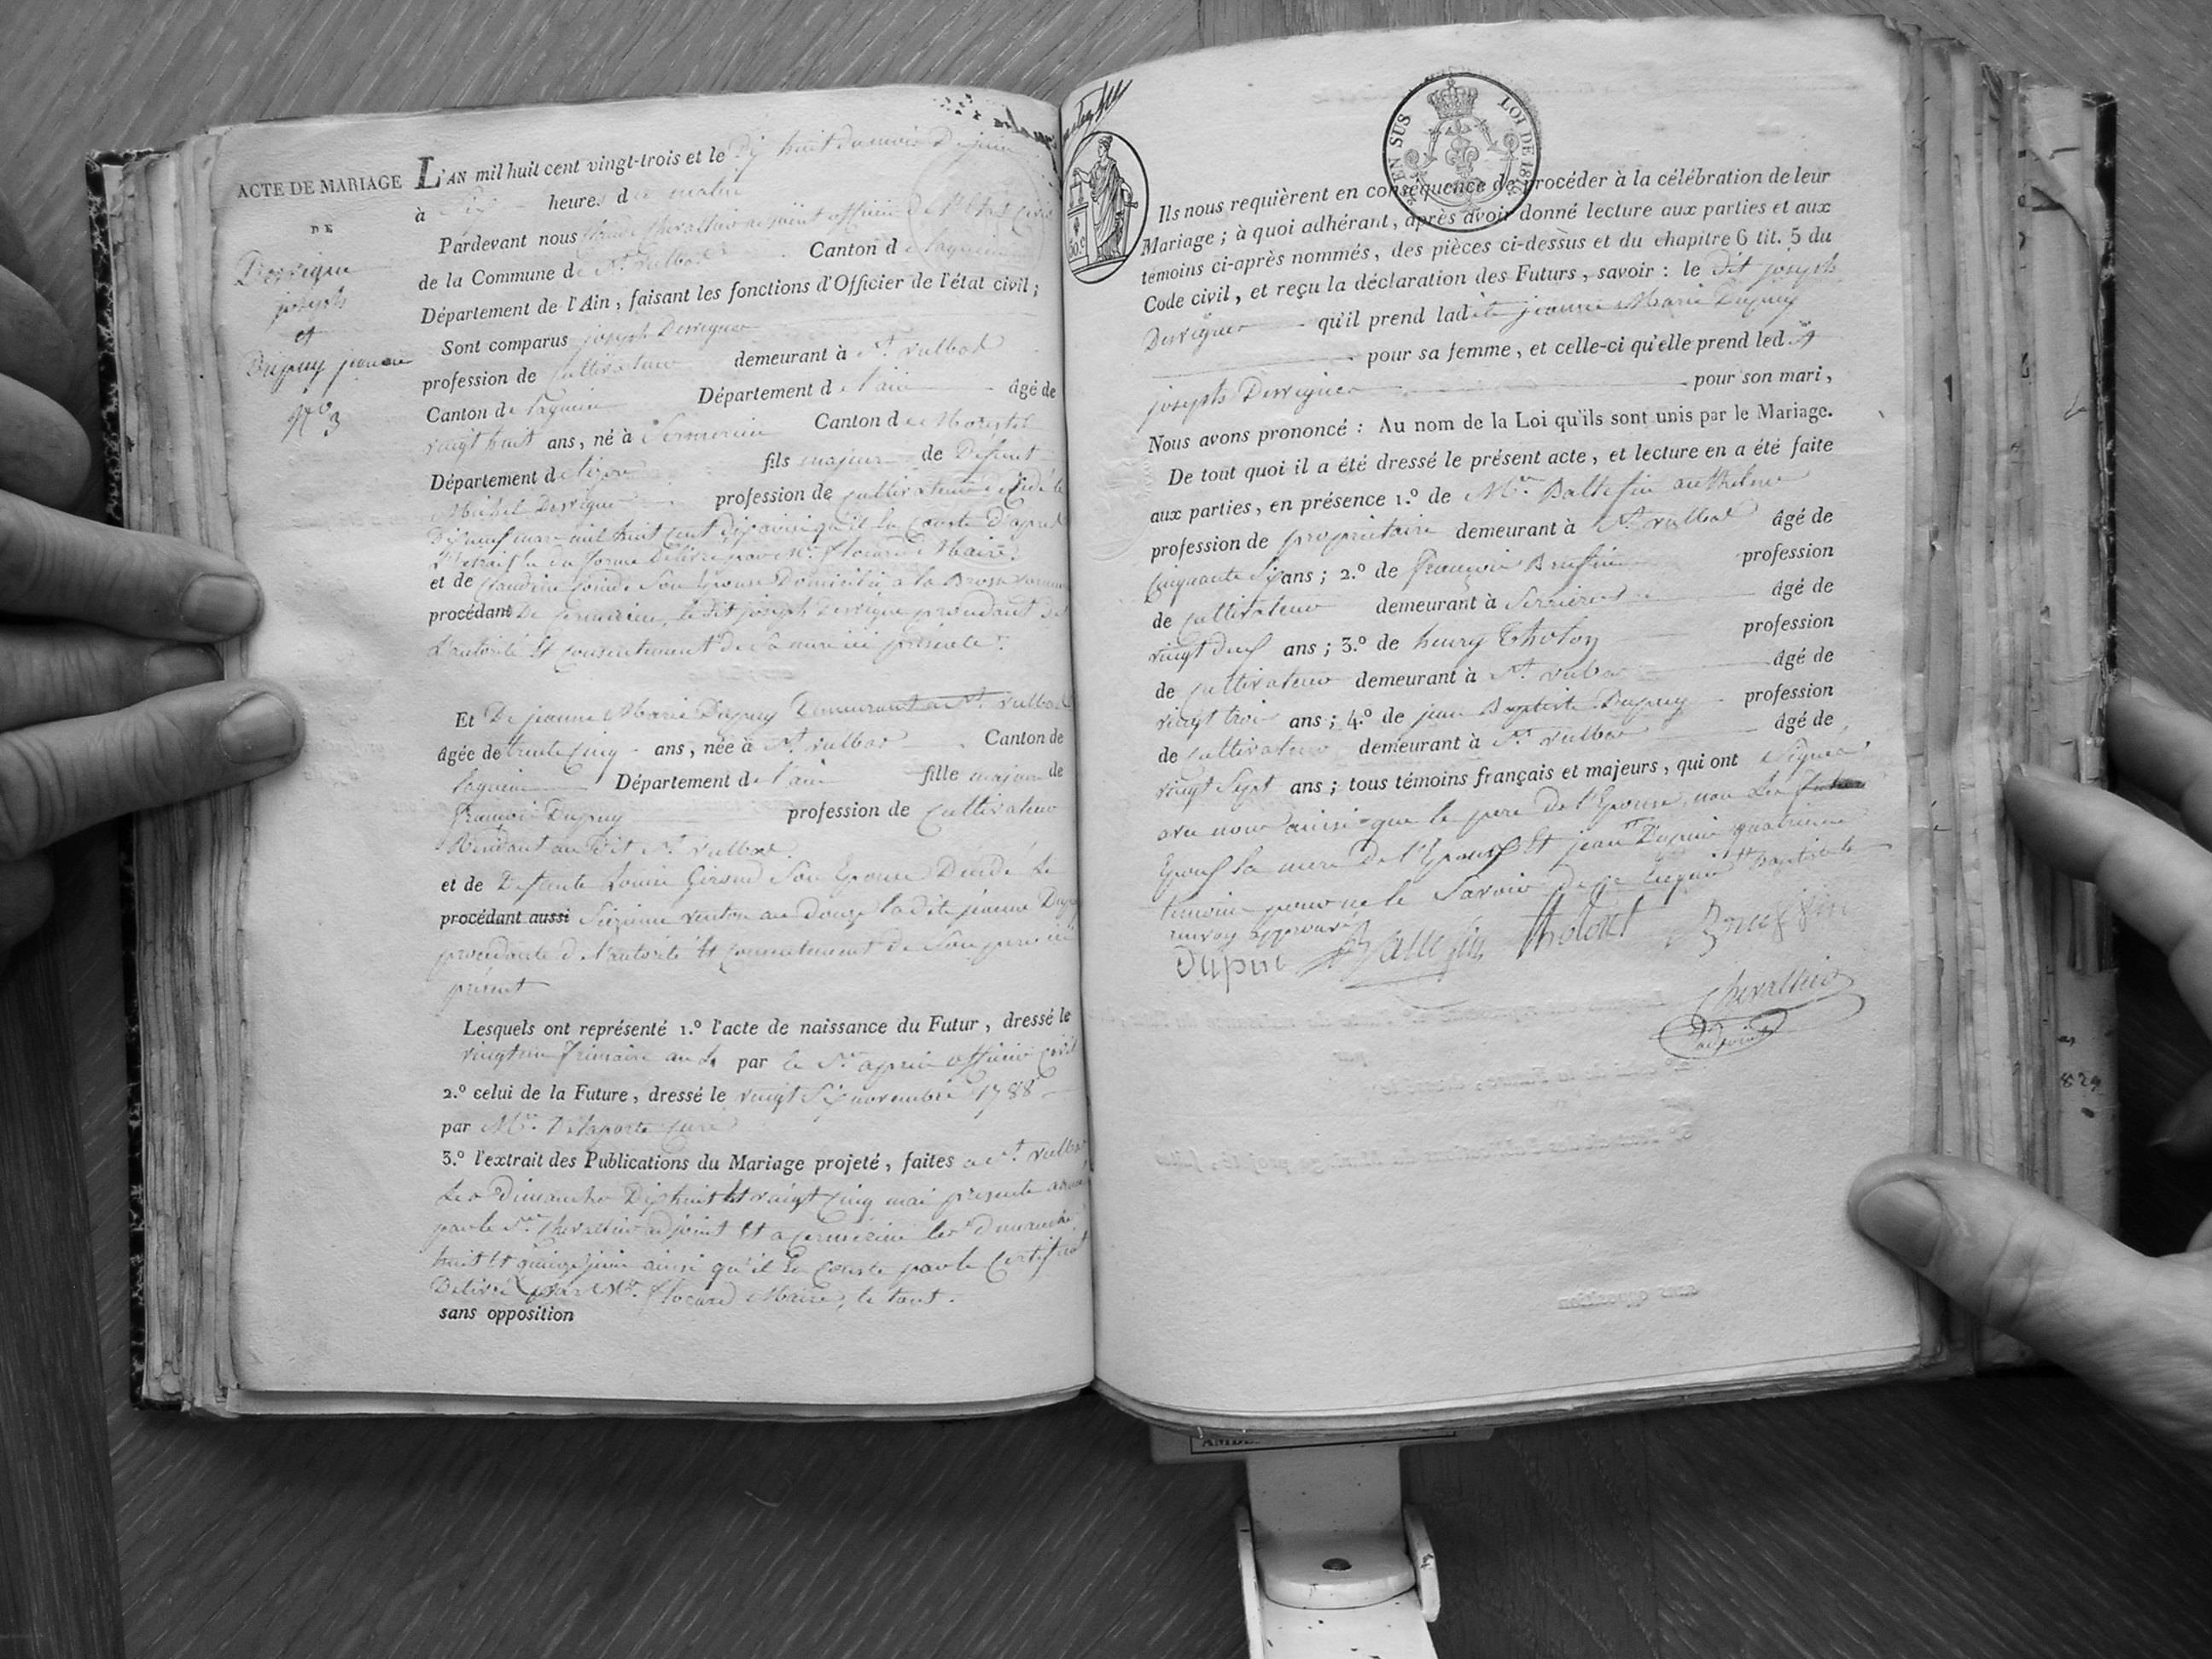 ACTE DE MARIAGE
DE
Derrigue
joseph
et
Dupuy jeanne
N.o 3
L'AN mil huit cent vingt-trois et le Dix huit du mois De juin
à Six heures du matin
Pardevant nous Chevallier adjoint officier de l'Etat Civil
de la Commune de St. vulbas Canton de lagnieu
Département de l'Ain, faisant les fonctions d'Officier de l'état civil;
Sont comparus joseph Derrigue
profession de Cultivateur demeurant à St. vulbas
Canton de lagnieu Département de l'ain âgé de
vingt huit ans, né à Sermerieu Canton de Morestel
Département de lizere fils majeur de Défunt
Michel Derrigue profession de Cultivateur décédé le
Dix neuf mars mil huit cent dix ainsi qu'il En Conste D'apres
L'Extrait En du forme Délivré par Mr. flocard Maire
et de Claudine son Epouse Domiciliée a la
procédant De Sermerieu, ledit joseph Derrigue procedant de
L'autorité Et Consentement de Sa mere ici présente
Et De jeanne Marie Dupuy Demeurant a St. vulbas
âgée de trente Cinq ans, née à St. vulbas Canton de
lagnieu Département de l'ain fille majeure de
françois Dupuy profession de Cultivateur
Résidant au Dit St. vulbas
et de Defunte Louise Son Epouse Décédé Le
procédant aussi Sixieme ventose an Douze ladite jeanne Dupuy
procedante de l'autorité Et Consentement de Son pere ici
présent
Lesquels ont représenté 1.º l'acte de naissance du Futur, dressé le
vingt un frimaire an 4 par le Sr. officier Civil
2.º celui de la Future, dressé le vingt Six novembre 1788
par Mr. Delaporte Curé
3.º l'extrait des Publications du Mariage projeté, faites a St. vulbas
Les Dimanches Dix huit Et vingt Cinq mai presente année
par le Sr. Chevallier adjoint Et a Sermerieu les Dimanches
huit Et quinze juin ainsi qu'il En Conste par le Certificat
Delivré par Mr. flocard Maire, le tout
sans opposition
EN SUS
LOI DE 18
50.c
Ils nous requièrent en conséquence de procéder à la célébration de leur
Mariage; à quoi adhérant, après avoir donné lecture aux parties et aux
témoins ci-après nommés, des pièces ci-dessus et du chapitre 6 tit. 5 du
Code civil, et reçu la déclaration des Futurs, savoir: le Dit joseph
Derrigue qu'il prend ladite jeanne Marie Dupuy
pour sa femme, et celle-ci qu'elle prend led. t
joseph Derrigue pour son mari,
Nous avons prononcé: Au nom de la Loi qu'ils sont unis par le Mariage.
De tout quoi il a été dressé le présent acte, et lecture en a été faite
aux parties, en présence 1.º de Mr. Ballefin anthelme
profession de propriétaire demeurant à St. vulbas âgé de
Cinquante Six ans; 2.º de françois Bruffin profession
de Cultivateur demeurant à Serrieres âgé de
vingt deux ans; 3.º de henry Tholon profession
de Cultivateur demeurant à St. vulbas âgé de
vingt trois ans; 4.º de jean Baptiste Dupuy profession
de Cultivateur demeurant à St. vulbas âgé de
vingt Sept ans; tous témoins français et majeurs, qui ont Signé
avec nous ainsi que le pere De l'Epouse, non Les
Epoux la mere De l'Epoux Et jean Dupuis quatrieme
temoin pour ne le Savoir De ce Enquis Baptiste
renvoy approuvé
Dupui Ballefin tholont Bruffin
Chevallier
adjoint
829